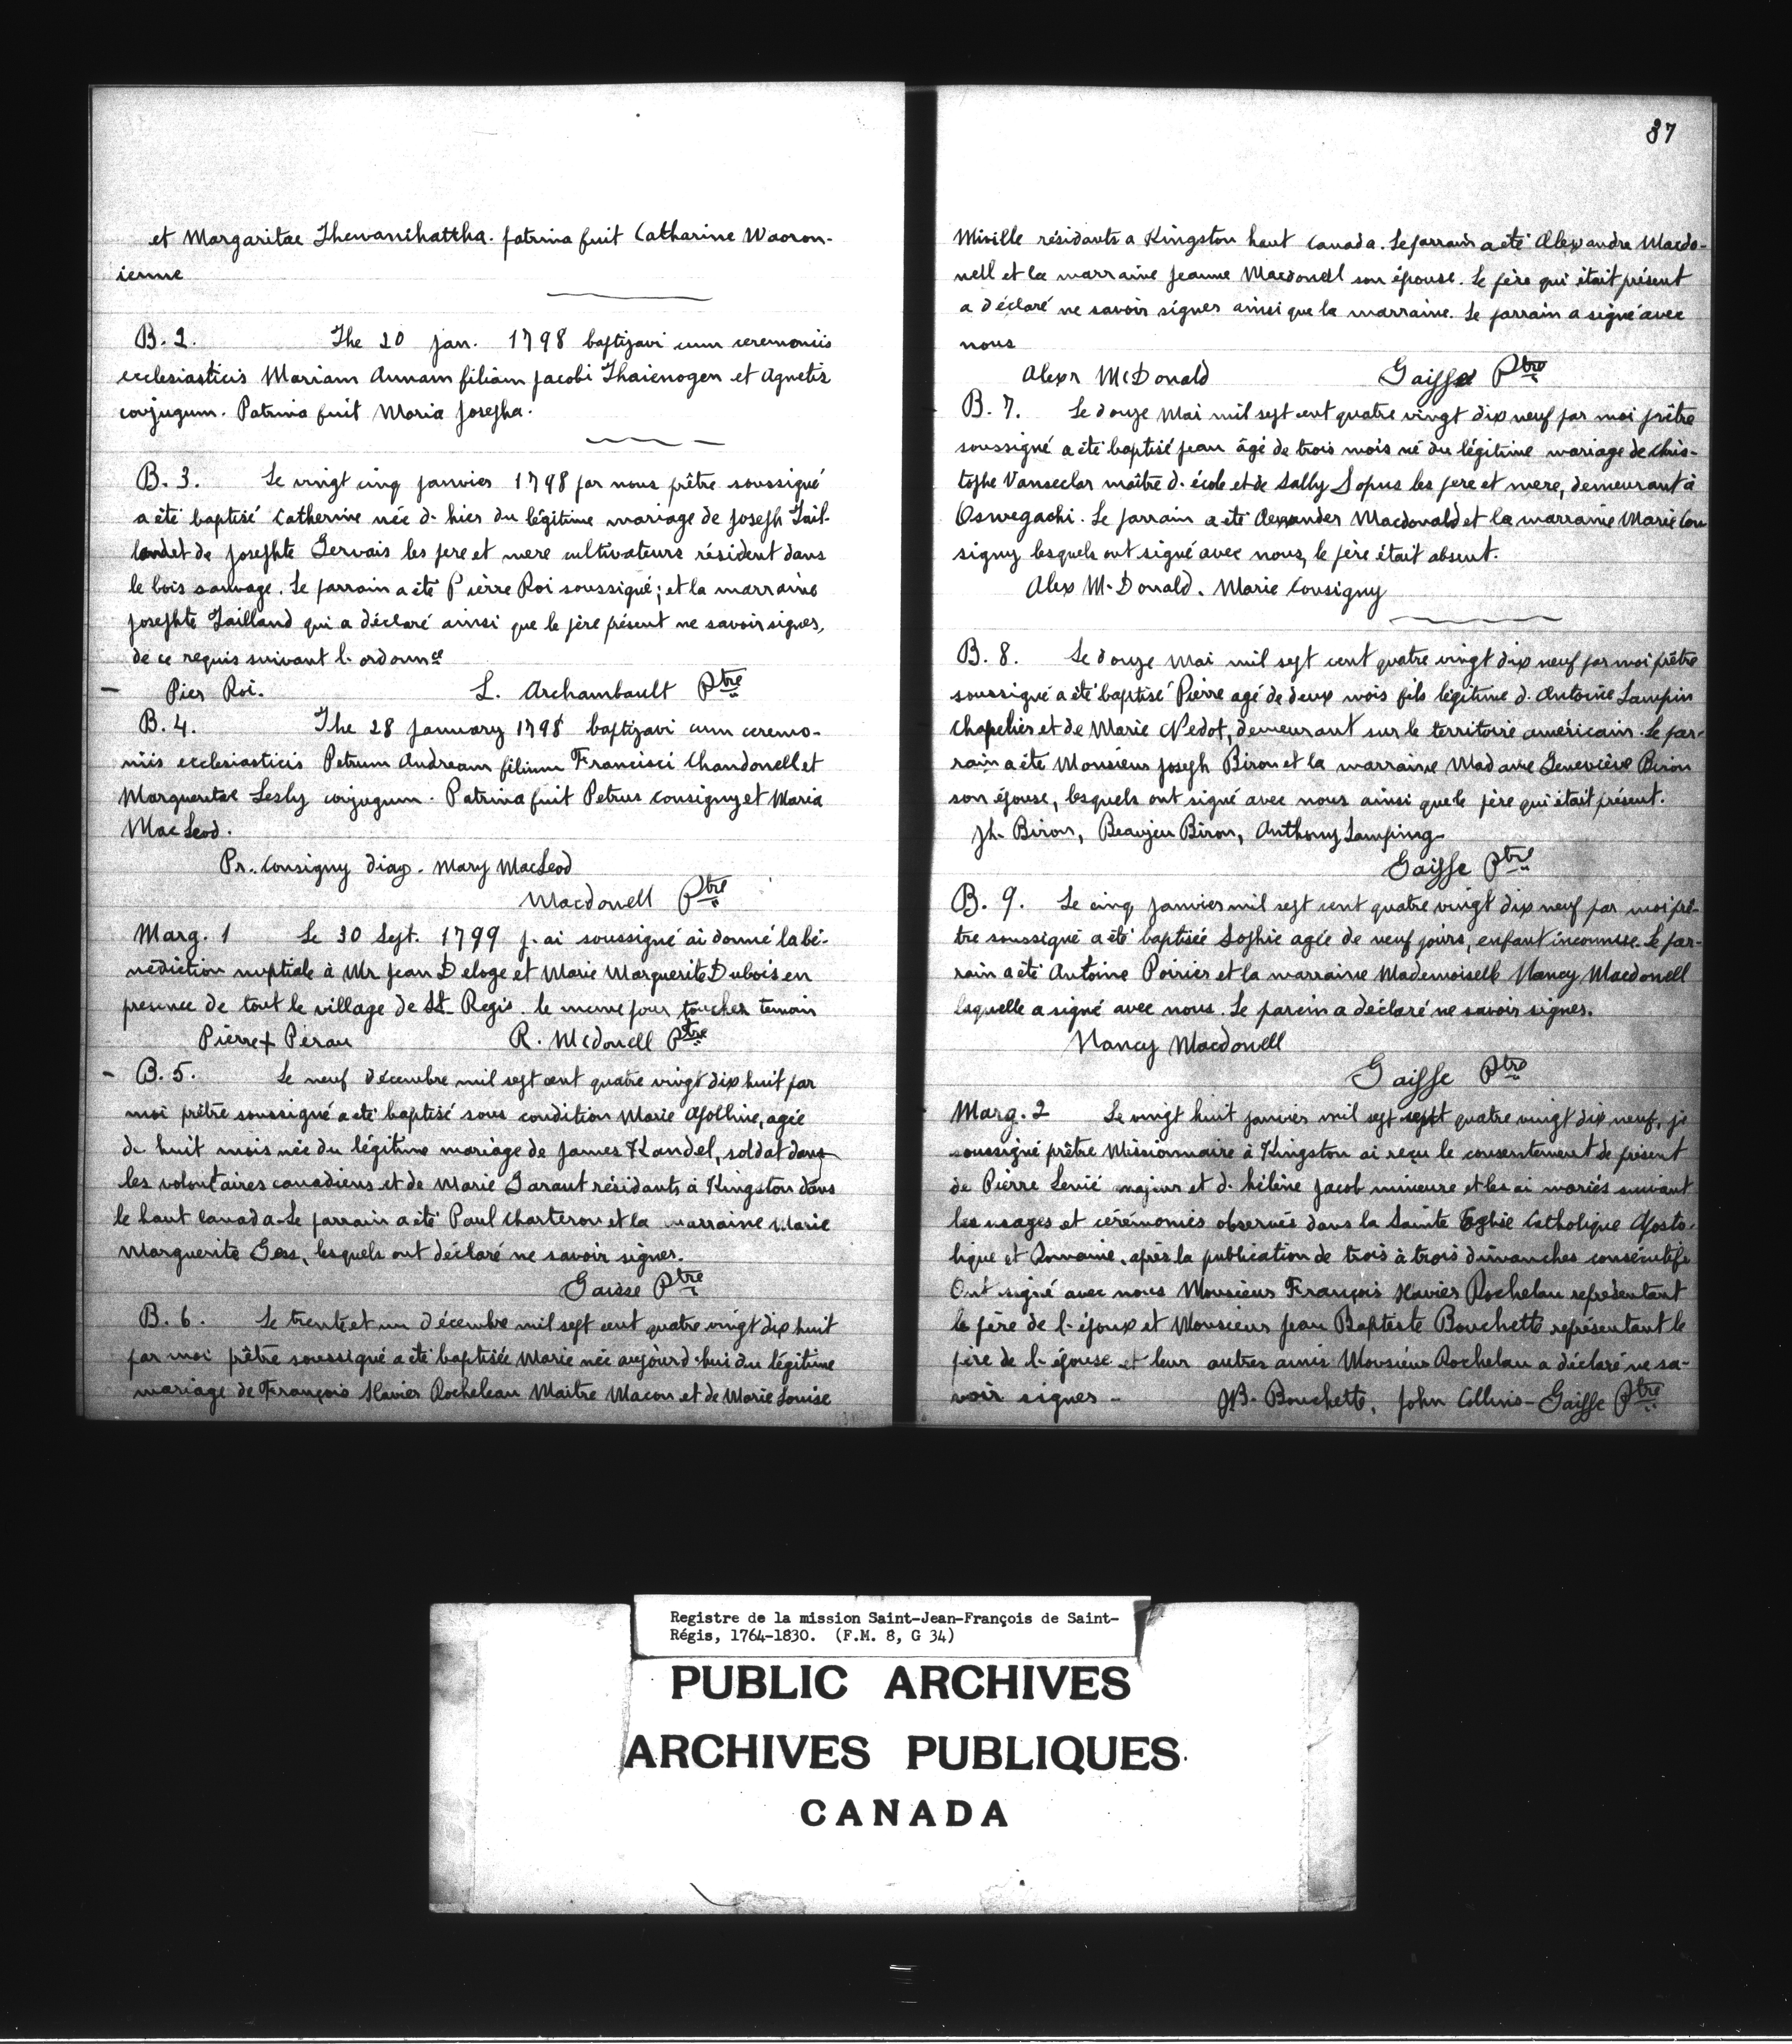 et Margaritae Thewanihattha. patrina fuit Catharine Waoron-
ienne
B. 2. The 20 jan. 1798 baptizavi cum ceremoniis
ecclesiasticis Mariam Annam filiam Jacobi Thaienogen et Agnetis
conjugum. Patrina fuit Maria Josepha.
B. 3. Le vingt cinq janvier 1798 par nous prêtre soussigné
a été baptisé Catherine née d. hier du légitime mariage de Joseph Tail-
land et de Josephte Gervais les pere et mere cultivateurs résident dans
le bois sauvage. Le parrain a été Pierre Roi soussigné; et la marraine
Josephte Tailland qui a déclaré ainsi que le père présent ne savoir signer,
de ce requis suivant l. ordonnce
Pier Roi. L. Archambault Ptre
B. 4. The 28 January 1798 baptizavi cum ceremo-
niis ecclesiasticis Petrum Andream filium Francisci Chandonell et
Margueritae Lesly conjugum. Patrina fuit Petrus Consigny et Maria
MacLeod.
Pr. Consigny diag. Mary MacLeod
Macdonell Ptre
Marg. 1 Le 30 Sept. 1799 j. ai soussigné ai donné la bé-
nédiction nuptiale à Mr Jean Deloge et Marie Marguerite Dubois en
presence de tout le village de St. Regis. le meme jour toucher temoin
Pierre + Perau R. McDonell Ptre
B. 5. Le neuf décembre mil sept cent quatre vingt dix huit par
moi prêtre soussigné a été baptisé sous condition Marie Apolline, agée
de huit mois née du légitime mariage de James Kandel, soldat dans
les volontaires canadiens et de Marie Garaut résidants à Kingston dans
le haut Canada. Le parrain a été Paul Charteron et la marraine Marie
Marguerite Gess, lesquels ont déclaré ne savoir signer.
Gaisse Ptre
B. 6. Le trente et un décembre mil sept cent quatre vingt dix huit
par moi prêtre soussigné a été baptisée Marie née aujourd'hui du légitime
mariage de François Xavier Rocheleau Maitre Macon et de Marie Louise
37
Miville résidants a Kingston haut Canada. Le parrain a été Alexandre Macdo-
nell et la marraine Jeanne Macdonell son épouse. Le père qui était présent
a déclaré ne savoir signer ainsi que la marraine. Le parrain a signé avec
nous
Alexr McDonald Gaisse Ptre
B. 7. Le douze Mai mil sept cent quatre vingt dix neuf par moi prêtre
soussigné a été baptisé Jean âgé de trois mois né du légitime mariage de Chris-
tophe Vanseclar maître d. école et de Sally Sopus les pere et mere, demeurant à
Oswegachi. Le parrain a été Alexander Macdonald et la marraine Marie Con
signy lesquels ont signé avec nous, le père était absent.
Alex McDonald. Marie Consigny
B. 8. Le douze Mai mil sept cent quatre vingt dix neuf par moi prêtre
soussigné a été baptisé Pierre agé de deux mois fils légitime d. Antoine Lampin
Chapelier et de Marie Nedot, demeurant sur le territoire américain. Le par-
rain a été Monsieur Joseph Biron et la marraine Madame Geneviève Biron
son épouse, lesquels ont signé avec nous ainsi que le père qui était présent.
Jh. Biron, Beaujeu Biron, Anthony Lamping
Gaisse Ptre
B. 9. Le cinq janvier mil sept cent quatre vingt dix neuf par moi prê-
tre soussigné a été baptisée Sophie agée de neuf jours, enfant inconnue. Le par-
rain a été Antoine Poirier et la marraine Mademoiselle Nancy Macdonell
laquelle a signé avec nous. Le parein a déclaré ne savoir signer.
Nancy Macdonell
Gaisse Ptre
Marg. 2 Le vingt huit janvier mil sept sept quatre vingt dix neuf, je
soussigné prêtre Missionnaire à Kingston ai reçu le consentement de présent
de Pierre Lenié majeur et d. hélène Jacob mineure et les ai mariés suivant
les usages et cérémonies observés dans la Sainte Eglise Catholique Aposto-
lique et Romaine, après la publication de trois à trois dimanches consécutifs
Ont signé avec nous Monsieur François Xavier Rochelau représentant
le père de l. époux et Monsieur Jean Baptiste Bouchette représentant le
père de l. épouse et leur autres amis Monsieur Rochelau a déclaré ne sa-
voir signer - JB. Bouchette, John Collins - Gaisse Ptre
Registre de la mission Saint-Jean-François de Saint-
Régis, 1764-1830. (F.M. 8, G 34)
PUBLIC ARCHIVES
ARCHIVES PUBLIQUES
CANADA